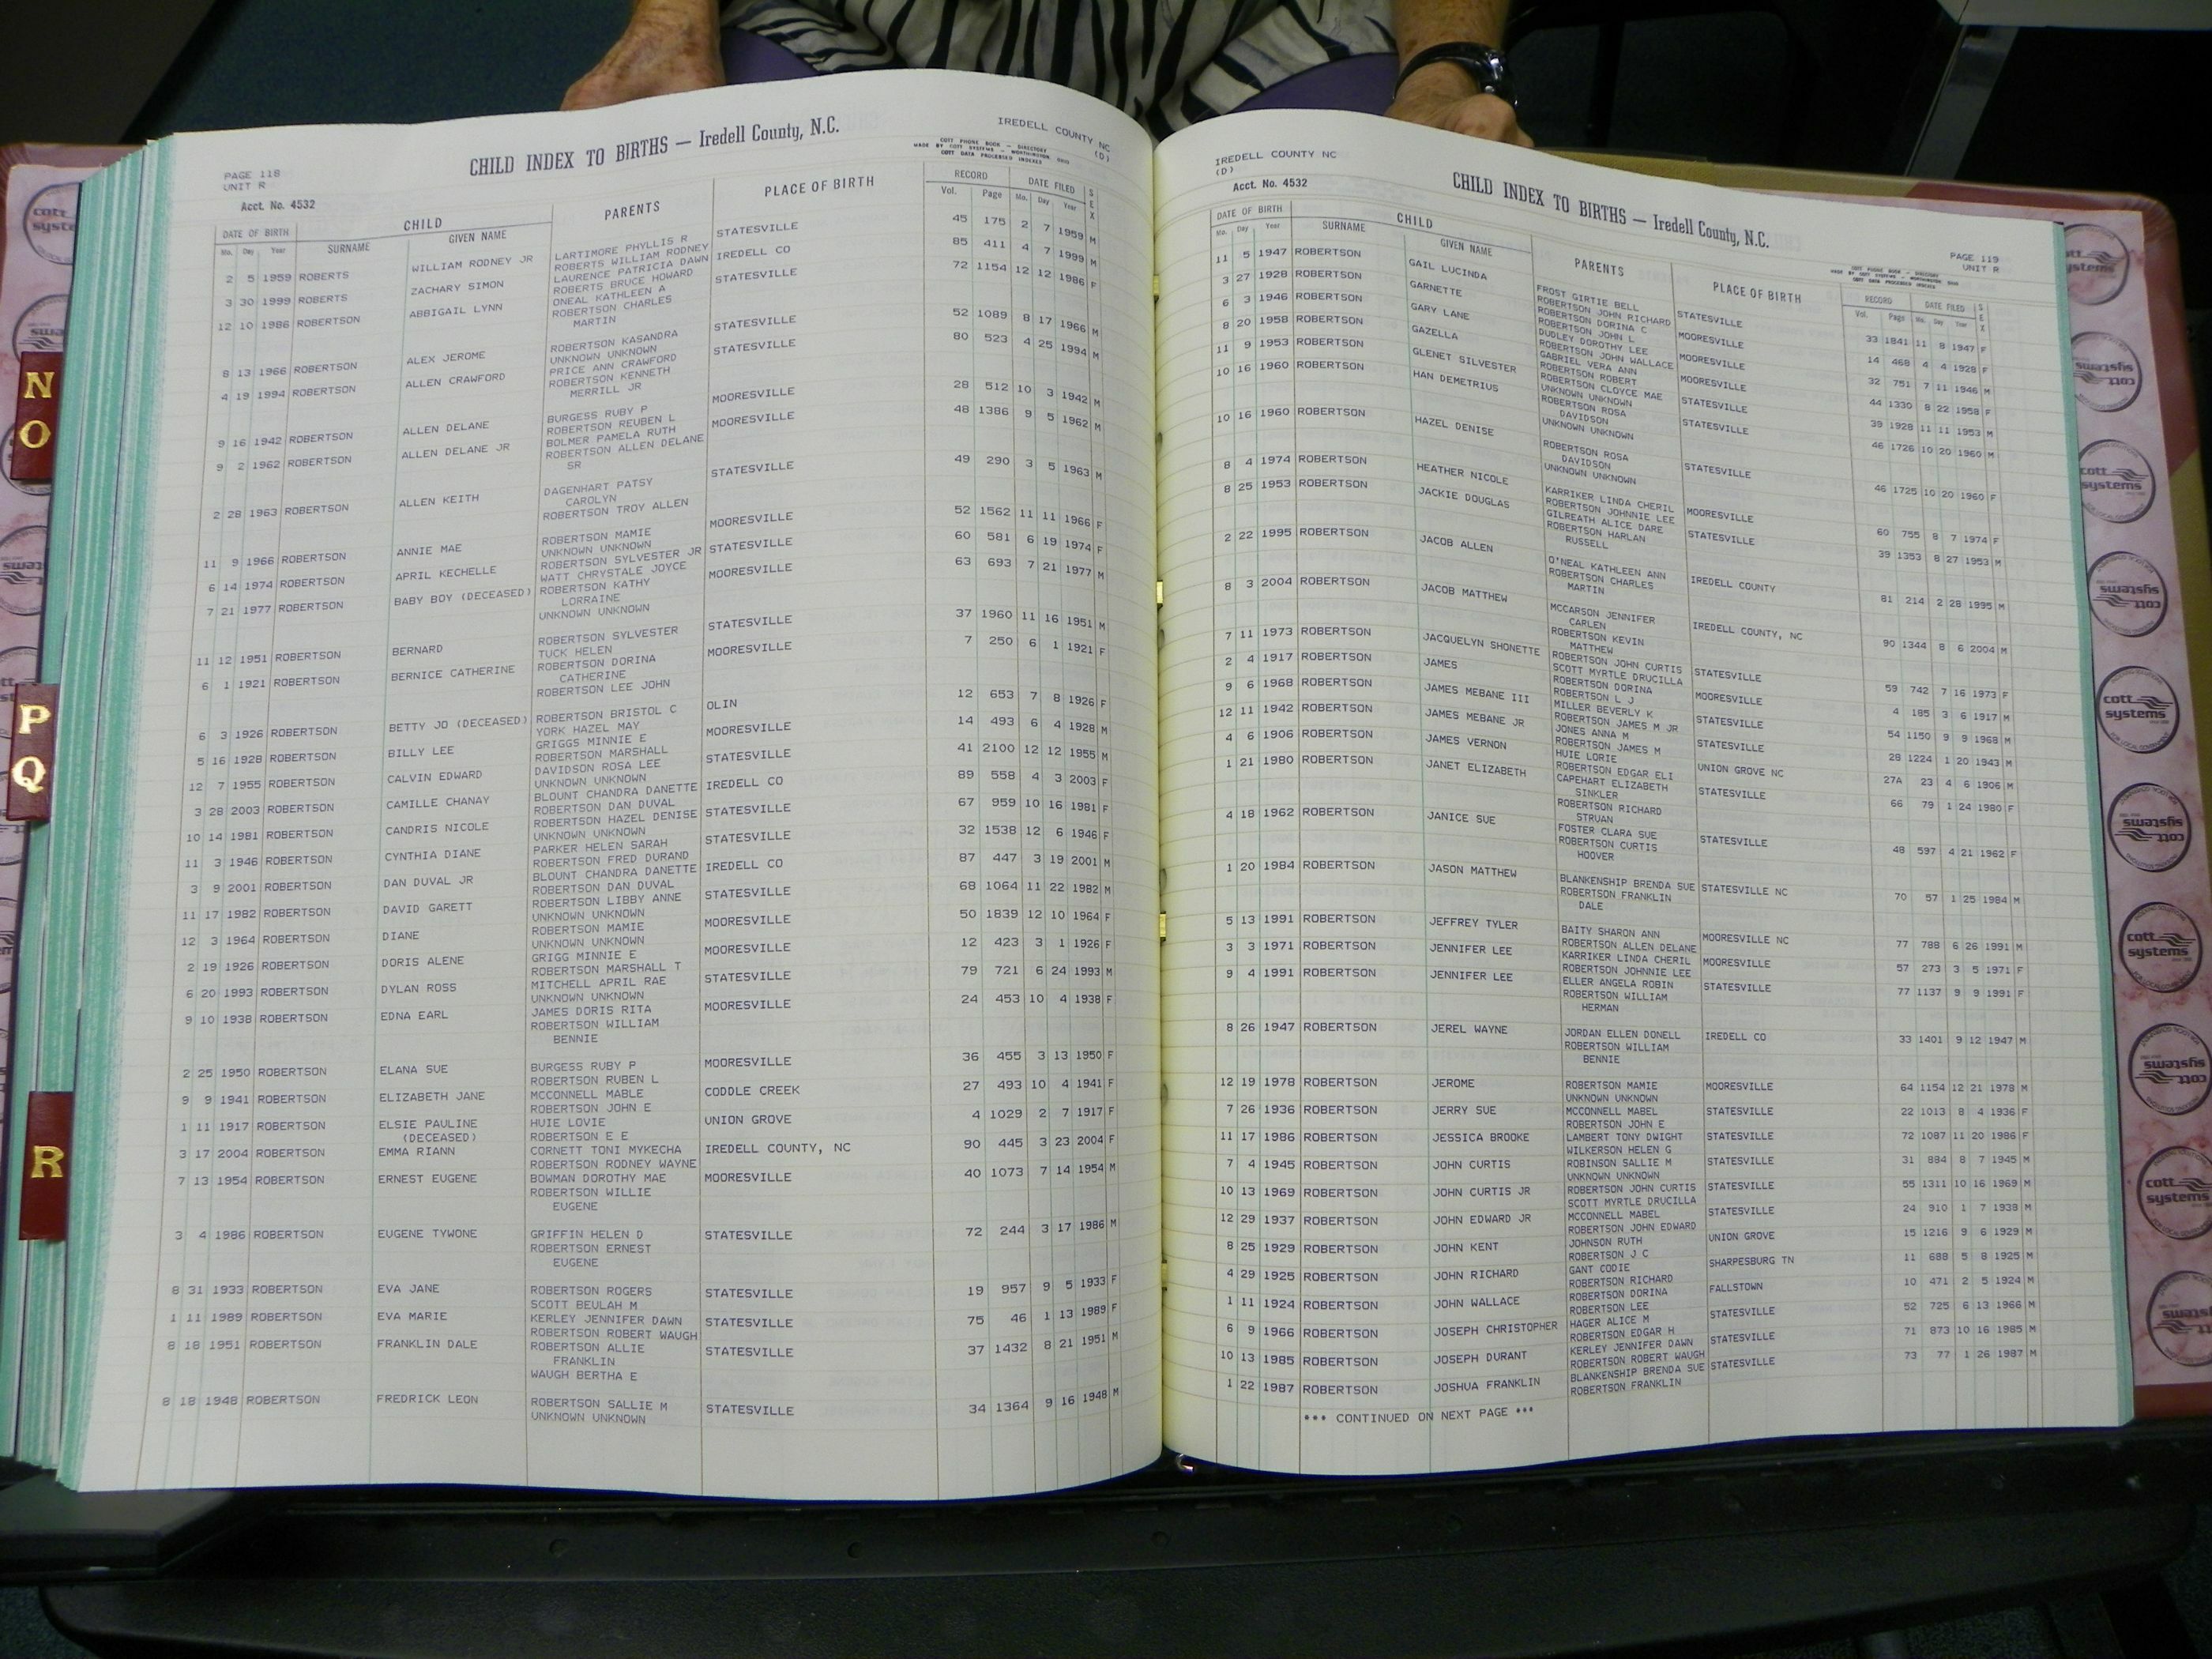 CHILD INDEX TO BIRTHS — Iredell County, N.C.
IREDELL COUNTY NC
(D)
PAGE 118
UNIT R
Acct. No. 4532
COTT PHONE BOOK - DIRECTORY
MADE BY COTT SYSTEMS - WORTHINGTON OHIO
COTT DATA PROCESSED INDEXES
DATE OF BIRTH CHILD PARENTS PLACE OF BIRTH RECORD DATE FILED SEX
Mo. Day Year SURNAME GIVEN NAME Vol. Page Mo. Day Year
2 5 1959 ROBERTS WILLIAM RODNEY JR LARTIMORE PHYLLIS R STATESVILLE 45 175 2 7 1959 M
ROBERTS WILLIAM RODNEY
3 30 1999 ROBERTS ZACHARY SIMON LAURENCE PATRICIA DAWN IREDELL CO 85 411 4 7 1999 M
ROBERTS BRUCE HOWARD
12 10 1986 ROBERTSON ABBIGAIL LYNN ONEAL KATHLEEN A STATESVILLE 72 1154 12 12 1986 F
ROBERTSON CHARLES
MARTIN
8 13 1966 ROBERTSON ALEX JEROME ROBERTSON KASANDRA STATESVILLE 52 1089 8 17 1966 M
UNKNOWN UNKNOWN
4 19 1994 ROBERTSON ALLEN CRAWFORD PRICE ANN CRAWFORD STATESVILLE 80 523 4 25 1994 M
ROBERTSON KENNETH
MERRILL JR
9 16 1942 ROBERTSON ALLEN DELANE BURGESS RUBY P MOORESVILLE 28 512 10 3 1942 M
ROBERTSON REUBEN L
9 2 1962 ROBERTSON ALLEN DELANE JR BOLMER PAMELA RUTH MOORESVILLE 48 1386 9 5 1962 M
ROBERTSON ALLEN DELANE
SR
2 28 1963 ROBERTSON ALLEN KEITH DAGENHART PATSY STATESVILLE 49 290 3 5 1963 M
CAROLYN
ROBERTSON TROY ALLEN
11 9 1966 ROBERTSON ANNIE MAE ROBERTSON MAMIE MOORESVILLE 52 1562 11 11 1966 F
UNKNOWN UNKNOWN
6 14 1974 ROBERTSON APRIL KECHELLE ROBERTSON SYLVESTER JR STATESVILLE 60 581 6 19 1974 F
WATT CHRYSTALE JOYCE
7 21 1977 ROBERTSON BABY BOY (DECEASED) ROBERTSON KATHY MOORESVILLE 63 693 7 21 1977 M
LORRAINE
UNKNOWN UNKNOWN
11 12 1951 ROBERTSON BERNARD ROBERTSON SYLVESTER STATESVILLE 37 1960 11 16 1951 M
TUCK HELEN
6 1 1921 ROBERTSON BERNICE CATHERINE ROBERTSON DORINA MOORESVILLE 7 250 6 1 1921 F
CATHERINE
ROBERTSON LEE JOHN
6 3 1926 ROBERTSON BETTY JO (DECEASED) ROBERTSON BRISTOL C OLIN 12 653 7 8 1926 F
YORK HAZEL MAY
5 16 1928 ROBERTSON BILLY LEE GRIGGS MINNIE E MOORESVILLE 14 493 6 4 1928 M
ROBERTSON MARSHALL
12 7 1955 ROBERTSON CALVIN EDWARD DAVIDSON ROSA LEE STATESVILLE 41 2100 12 12 1955 M
UNKNOWN UNKNOWN
3 28 2003 ROBERTSON CAMILLE CHANAY BLOUNT CHANDRA DANETTE IREDELL CO 89 558 4 3 2003 F
ROBERTSON DAN DUVAL
10 14 1981 ROBERTSON CANDRIS NICOLE ROBERTSON HAZEL DENISE STATESVILLE 67 959 10 16 1981 F
UNKNOWN UNKNOWN
11 3 1946 ROBERTSON CYNTHIA DIANE PARKER HELEN SARAH STATESVILLE 32 1538 12 6 1946 F
ROBERTSON FRED DURAND
3 9 2001 ROBERTSON DAN DUVAL JR BLOUNT CHANDRA DANETTE IREDELL CO 87 447 3 19 2001 M
ROBERTSON DAN DUVAL
11 17 1982 ROBERTSON DAVID GARETT ROBERTSON LIBBY ANNE STATESVILLE 68 1064 11 22 1982 M
UNKNOWN UNKNOWN
12 3 1964 ROBERTSON DIANE ROBERTSON MAMIE MOORESVILLE 50 1839 12 10 1964 F
UNKNOWN UNKNOWN
2 19 1926 ROBERTSON DORIS ALENE GRIGG MINNIE E MOORESVILLE 12 423 3 1 1926 F
ROBERTSON MARSHALL T
6 20 1993 ROBERTSON DYLAN ROSS MITCHELL APRIL RAE STATESVILLE 79 721 6 24 1993 M
UNKNOWN UNKNOWN
9 10 1938 ROBERTSON EDNA EARL JAMES DORIS RITA MOORESVILLE 24 453 10 4 1938 F
ROBERTSON WILLIAM
BENNIE
2 25 1950 ROBERTSON ELANA SUE BURGESS RUBY P MOORESVILLE 36 455 3 13 1950 F
ROBERTSON RUBEN L
9 9 1941 ROBERTSON ELIZABETH JANE MCCONNELL MABLE CODDLE CREEK 27 493 10 4 1941 F
ROBERTSON JOHN E
1 11 1917 ROBERTSON ELSIE PAULINE HUIE LOVIE UNION GROVE 4 1029 2 7 1917 F
(DECEASED) ROBERTSON E E
3 17 2004 ROBERTSON EMMA RIANN CORNETT TONI MYKECHA IREDELL COUNTY, NC 90 445 3 23 2004 F
ROBERTSON RODNEY WAYNE
7 13 1954 ROBERTSON ERNEST EUGENE BOWMAN DOROTHY MAE MOORESVILLE 40 1073 7 14 1954 M
ROBERTSON WILLIE
EUGENE
3 4 1986 ROBERTSON EUGENE TYWONE GRIFFIN HELEN D STATESVILLE 72 244 3 17 1986 M
ROBERTSON ERNEST
EUGENE
8 31 1933 ROBERTSON EVA JANE ROBERTSON ROGERS STATESVILLE 19 957 9 5 1933 F
SCOTT BEULAH M
1 11 1989 ROBERTSON EVA MARIE KERLEY JENNIFER DAWN STATESVILLE 75 46 1 13 1989 F
ROBERTSON ROBERT WAUGH
8 18 1951 ROBERTSON FRANKLIN DALE ROBERTSON ALLIE STATESVILLE 37 1432 8 21 1951 M
FRANKLIN
WAUGH BERTHA E
8 18 1948 ROBERTSON FREDRICK LEON ROBERTSON SALLIE M STATESVILLE 34 1364 9 16 1948 M
UNKNOWN UNKNOWN
IREDELL COUNTY NC
(D)
Acct. No. 4532
CHILD INDEX TO BIRTHS — Iredell County, N.C.
PAGE 119
UNIT R
COTT PHONE BOOK - DIRECTORY
MADE BY COTT SYSTEMS - WORTHINGTON OHIO
COTT DATA PROCESSED INDEXES
DATE OF BIRTH CHILD PARENTS PLACE OF BIRTH RECORD DATE FILED SEX
Mo. Day Year SURNAME GIVEN NAME Vol. Page Mo. Day Year
11 5 1947 ROBERTSON GAIL LUCINDA FROST GIRTIE BELL STATESVILLE 33 1841 11 8 1947 F
ROBERTSON JOHN RICHARD
3 27 1928 ROBERTSON GARNETTE ROBERTSON DORINA C MOORESVILLE 14 468 4 4 1928 F
ROBERTSON JOHN L
6 3 1946 ROBERTSON GARY LANE DUDLEY DOROTHY LEE MOORESVILLE 32 751 7 11 1946 M
ROBERTSON JOHN WALLACE
8 20 1958 ROBERTSON GAZELLA GABRIEL VERA ANN MOORESVILLE 44 1330 8 22 1958 F
ROBERTSON ROBERT
11 9 1953 ROBERTSON GLENET SILVESTER ROBERTSON CLOYCE MAE STATESVILLE 39 1928 11 11 1953 M
UNKNOWN UNKNOWN
10 16 1960 ROBERTSON HAN DEMETRIUS ROBERTSON ROSA STATESVILLE 46 1726 10 20 1960 M
DAVIDSON
UNKNOWN UNKNOWN
10 16 1960 ROBERTSON HAZEL DENISE ROBERTSON ROSA STATESVILLE 46 1725 10 20 1960 F
DAVIDSON
UNKNOWN UNKNOWN
8 4 1974 ROBERTSON HEATHER NICOLE KARRIKER LINDA CHERIL MOORESVILLE 60 755 8 7 1974 F
ROBERTSON JOHNNIE LEE
8 25 1953 ROBERTSON JACKIE DOUGLAS GILREATH ALICE DARE STATESVILLE 39 1353 8 27 1953 M
ROBERTSON HARLAN
RUSSELL
2 22 1995 ROBERTSON JACOB ALLEN O'NEAL KATHLEEN ANN IREDELL COUNTY 81 214 2 28 1995 M
ROBERTSON CHARLES
MARTIN
8 3 2004 ROBERTSON JACOB MATTHEW MCCARSON JENNIFER IREDELL COUNTY, NC 90 1344 8 6 2004 M
CARLEN
ROBERTSON KEVIN
MATTHEW
7 11 1973 ROBERTSON JACQUELYN SHONETTE ROBERTSON JOHN CURTIS STATESVILLE 59 742 7 16 1973 F
SCOTT MYRTLE DRUCILLA
2 4 1917 ROBERTSON JAMES ROBERTSON DORINA MOORESVILLE 4 185 3 6 1917 M
ROBERTSON L J
9 6 1968 ROBERTSON JAMES MEBANE III MILLER BEVERLY K STATESVILLE 54 1150 9 9 1968 M
ROBERTSON JAMES M JR
12 11 1942 ROBERTSON JAMES MEBANE JR JONES ANNA M STATESVILLE 28 1224 1 20 1943 M
ROBERTSON JAMES M
4 6 1906 ROBERTSON JAMES VERNON HUIE LORIE UNION GROVE NC 27A 23 4 6 1906 M
ROBERTSON EDGAR ELI
1 21 1980 ROBERTSON JANET ELIZABETH CAPEHART ELIZABETH STATESVILLE 66 79 1 24 1980 F
SINKLER
ROBERTSON RICHARD
STRUAN
4 18 1962 ROBERTSON JANICE SUE FOSTER CLARA SUE STATESVILLE 48 597 4 21 1962 F
ROBERTSON CURTIS
HOOVER
1 20 1984 ROBERTSON JASON MATTHEW BLANKENSHIP BRENDA SUE STATESVILLE NC 70 57 1 25 1984 M
ROBERTSON FRANKLIN
DALE
5 13 1991 ROBERTSON JEFFREY TYLER BAITY SHARON ANN MOORESVILLE NC 77 788 6 26 1991 M
ROBERTSON ALLEN DELANE
3 3 1971 ROBERTSON JENNIFER LEE KARRIKER LINDA CHERIL MOORESVILLE 57 273 3 5 1971 F
ROBERTSON JOHNNIE LEE
9 4 1991 ROBERTSON JENNIFER LEE ELLER ANGELA ROBIN STATESVILLE 77 1137 9 9 1991 F
ROBERTSON WILLIAM
HERMAN
8 26 1947 ROBERTSON JEREL WAYNE JORDAN ELLEN DONELL IREDELL CO 33 1401 9 12 1947 M
ROBERTSON WILLIAM
BENNIE
12 19 1978 ROBERTSON JEROME ROBERTSON MAMIE MOORESVILLE 64 1154 12 21 1978 M
UNKNOWN UNKNOWN
7 26 1936 ROBERTSON JERRY SUE MCCONNELL MABEL STATESVILLE 22 1013 8 4 1936 F
ROBERTSON JOHN E
11 17 1986 ROBERTSON JESSICA BROOKE LAMBERT TONY DWIGHT STATESVILLE 72 1087 11 20 1986 F
WILKERSON HELEN G
7 4 1945 ROBERTSON JOHN CURTIS ROBINSON SALLIE M STATESVILLE 31 884 8 7 1945 M
UNKNOWN UNKNOWN
10 13 1969 ROBERTSON JOHN CURTIS JR ROBERTSON JOHN CURTIS STATESVILLE 55 1311 10 16 1969 M
SCOTT MYRTLE DRUCILLA
12 29 1937 ROBERTSON JOHN EDWARD JR MCCONNELL MABEL STATESVILLE 24 910 1 7 1938 M
ROBERTSON JOHN EDWARD
8 25 1929 ROBERTSON JOHN KENT JOHNSON RUTH UNION GROVE 15 1216 9 6 1929 M
ROBERTSON J C
4 29 1925 ROBERTSON JOHN RICHARD GANT CODIE SHARPESBURG TN 11 688 5 8 1925 M
ROBERTSON RICHARD
1 11 1924 ROBERTSON JOHN WALLACE ROBERTSON DORINA FALLSTOWN 10 471 2 5 1924 M
ROBERTSON LEE
6 9 1966 ROBERTSON JOSEPH CHRISTOPHER HAGER ALICE M STATESVILLE 52 725 6 13 1966 M
ROBERTSON EDGAR H
10 13 1985 ROBERTSON JOSEPH DURANT KERLEY JENNIFER DAWN STATESVILLE 71 873 10 16 1985 M
ROBERTSON ROBERT WAUGH
1 22 1987 ROBERTSON JOSHUA FRANKLIN BLANKENSHIP BRENDA SUE STATESVILLE 73 77 1 26 1987 M
ROBERTSON FRANKLIN
*** CONTINUED ON NEXT PAGE ***
N
O
P
Q
R
cott
systems